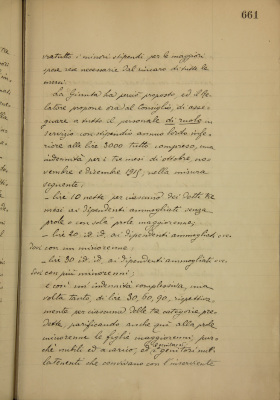 661
tratutti i minori stipendi per le maggiori
spese rese necessarie dal rincaro di tutte le
La Giunta ha perciò proposto, ed il Re-
latore propone ora al Consiglio, di asse-
gnare a tutto il personale di ruolo in
servizio con stipendio annuo lordo infe-
riore alle lire 3000 tutto compreso, una
indennità per i tre mesi di ottobre, no-
vembre e dicembre 1915, nella misura
seguente:
- lire 10 nette per ciascuno dei detti tre
mesi ai dipendenti ammogliati senza
prole o con sola prole maggiorenne;
- lire 20, id. id. ai dipendenti ammogliati o ve-
dovi con un minorenne;
- lire 30 id. id. ai dipendenti ammogliati o ve-
dovi con più minorenni;
e così un' indennità complessiva, una
volta tanto, di lire 30, 60, 90, rispettiva-
mente per ciascuna delle tre categorie pre-
dette, parificando anche qui alla prole
minorenne le figlie maggiorenni, pur-
chè nubili ed a carico, ed i genitori nul-
latenenti che convivano con l'